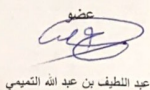 عضو
عبد اللطيف بن عبد الله التميمي